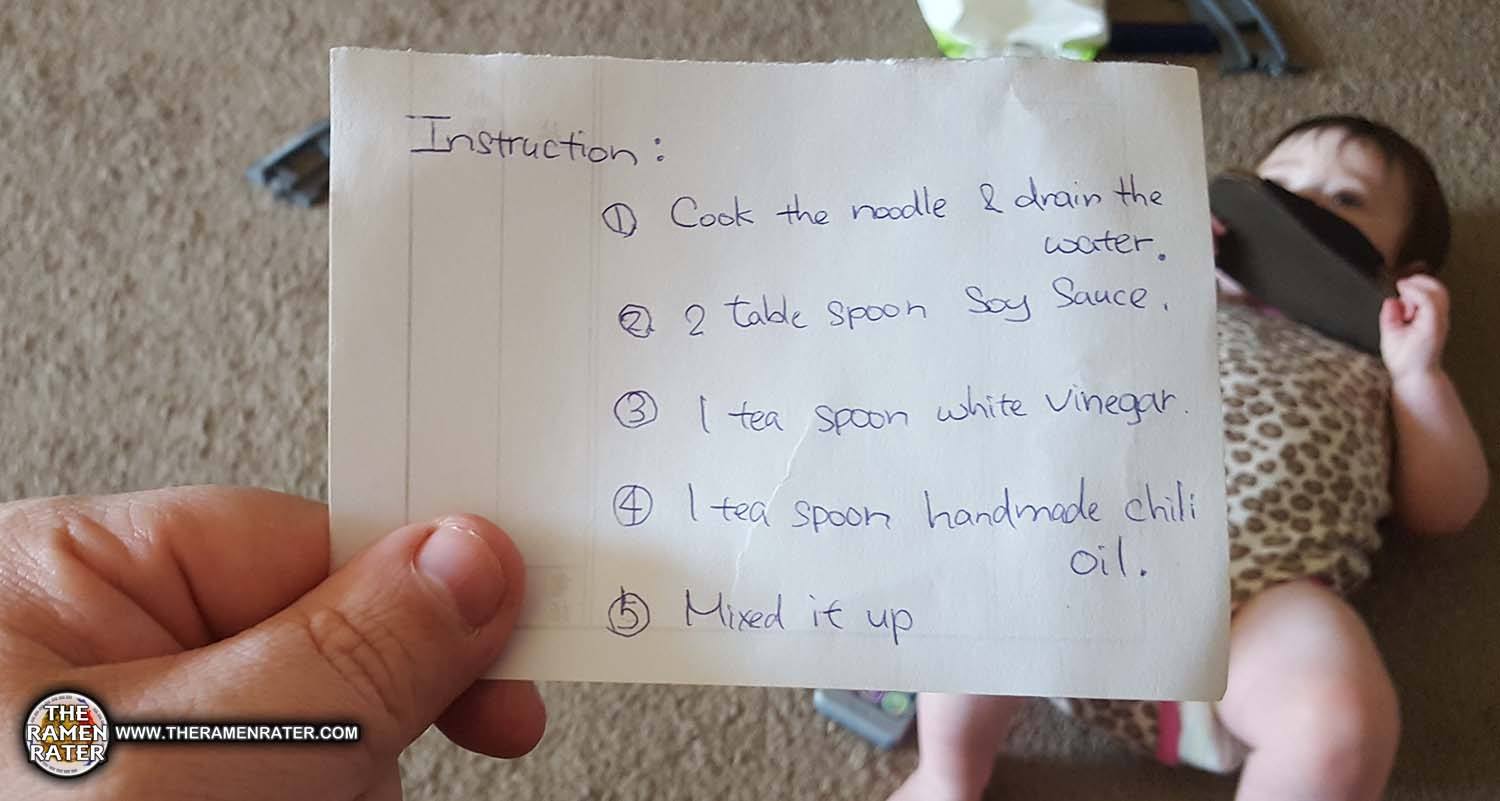 Instruction:
① Cook the noodle & drain the
water.
② 2 table spoon Soy Sauce.
③ 1 tea spoon white vinegar.
④ 1 tea spoon handmade chili
oil.
⑤ Mixed it up
THE
RAMEN
RATER
WWW.THERAMENRATER.COM